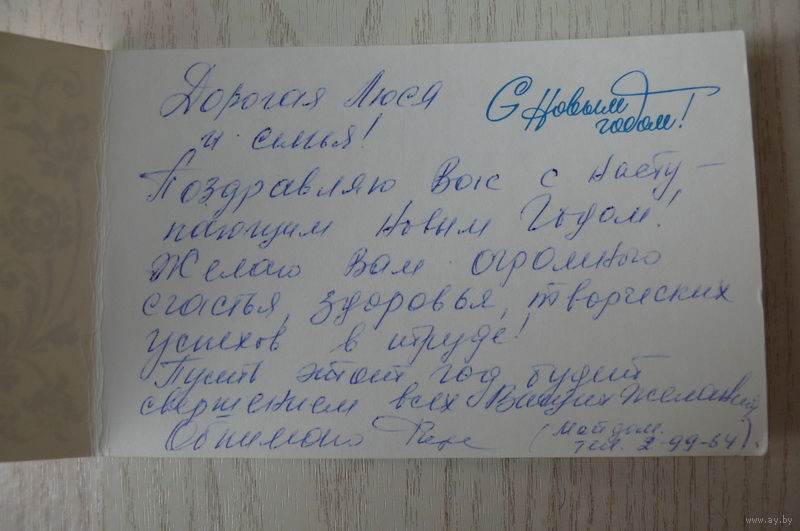 Дорогая Люся
и семья!
С Новым
годом!
Поздравляю Вас с насту-
пающим Новым Годом!
Желаю Вам огромного
счастья, здоровья, творческих
успехов в труде!
Пусть этот год будет
свершением всех Ваших желаний
Обнимаю (Мой дом.
тел. 2-99-64).
www.ay.by